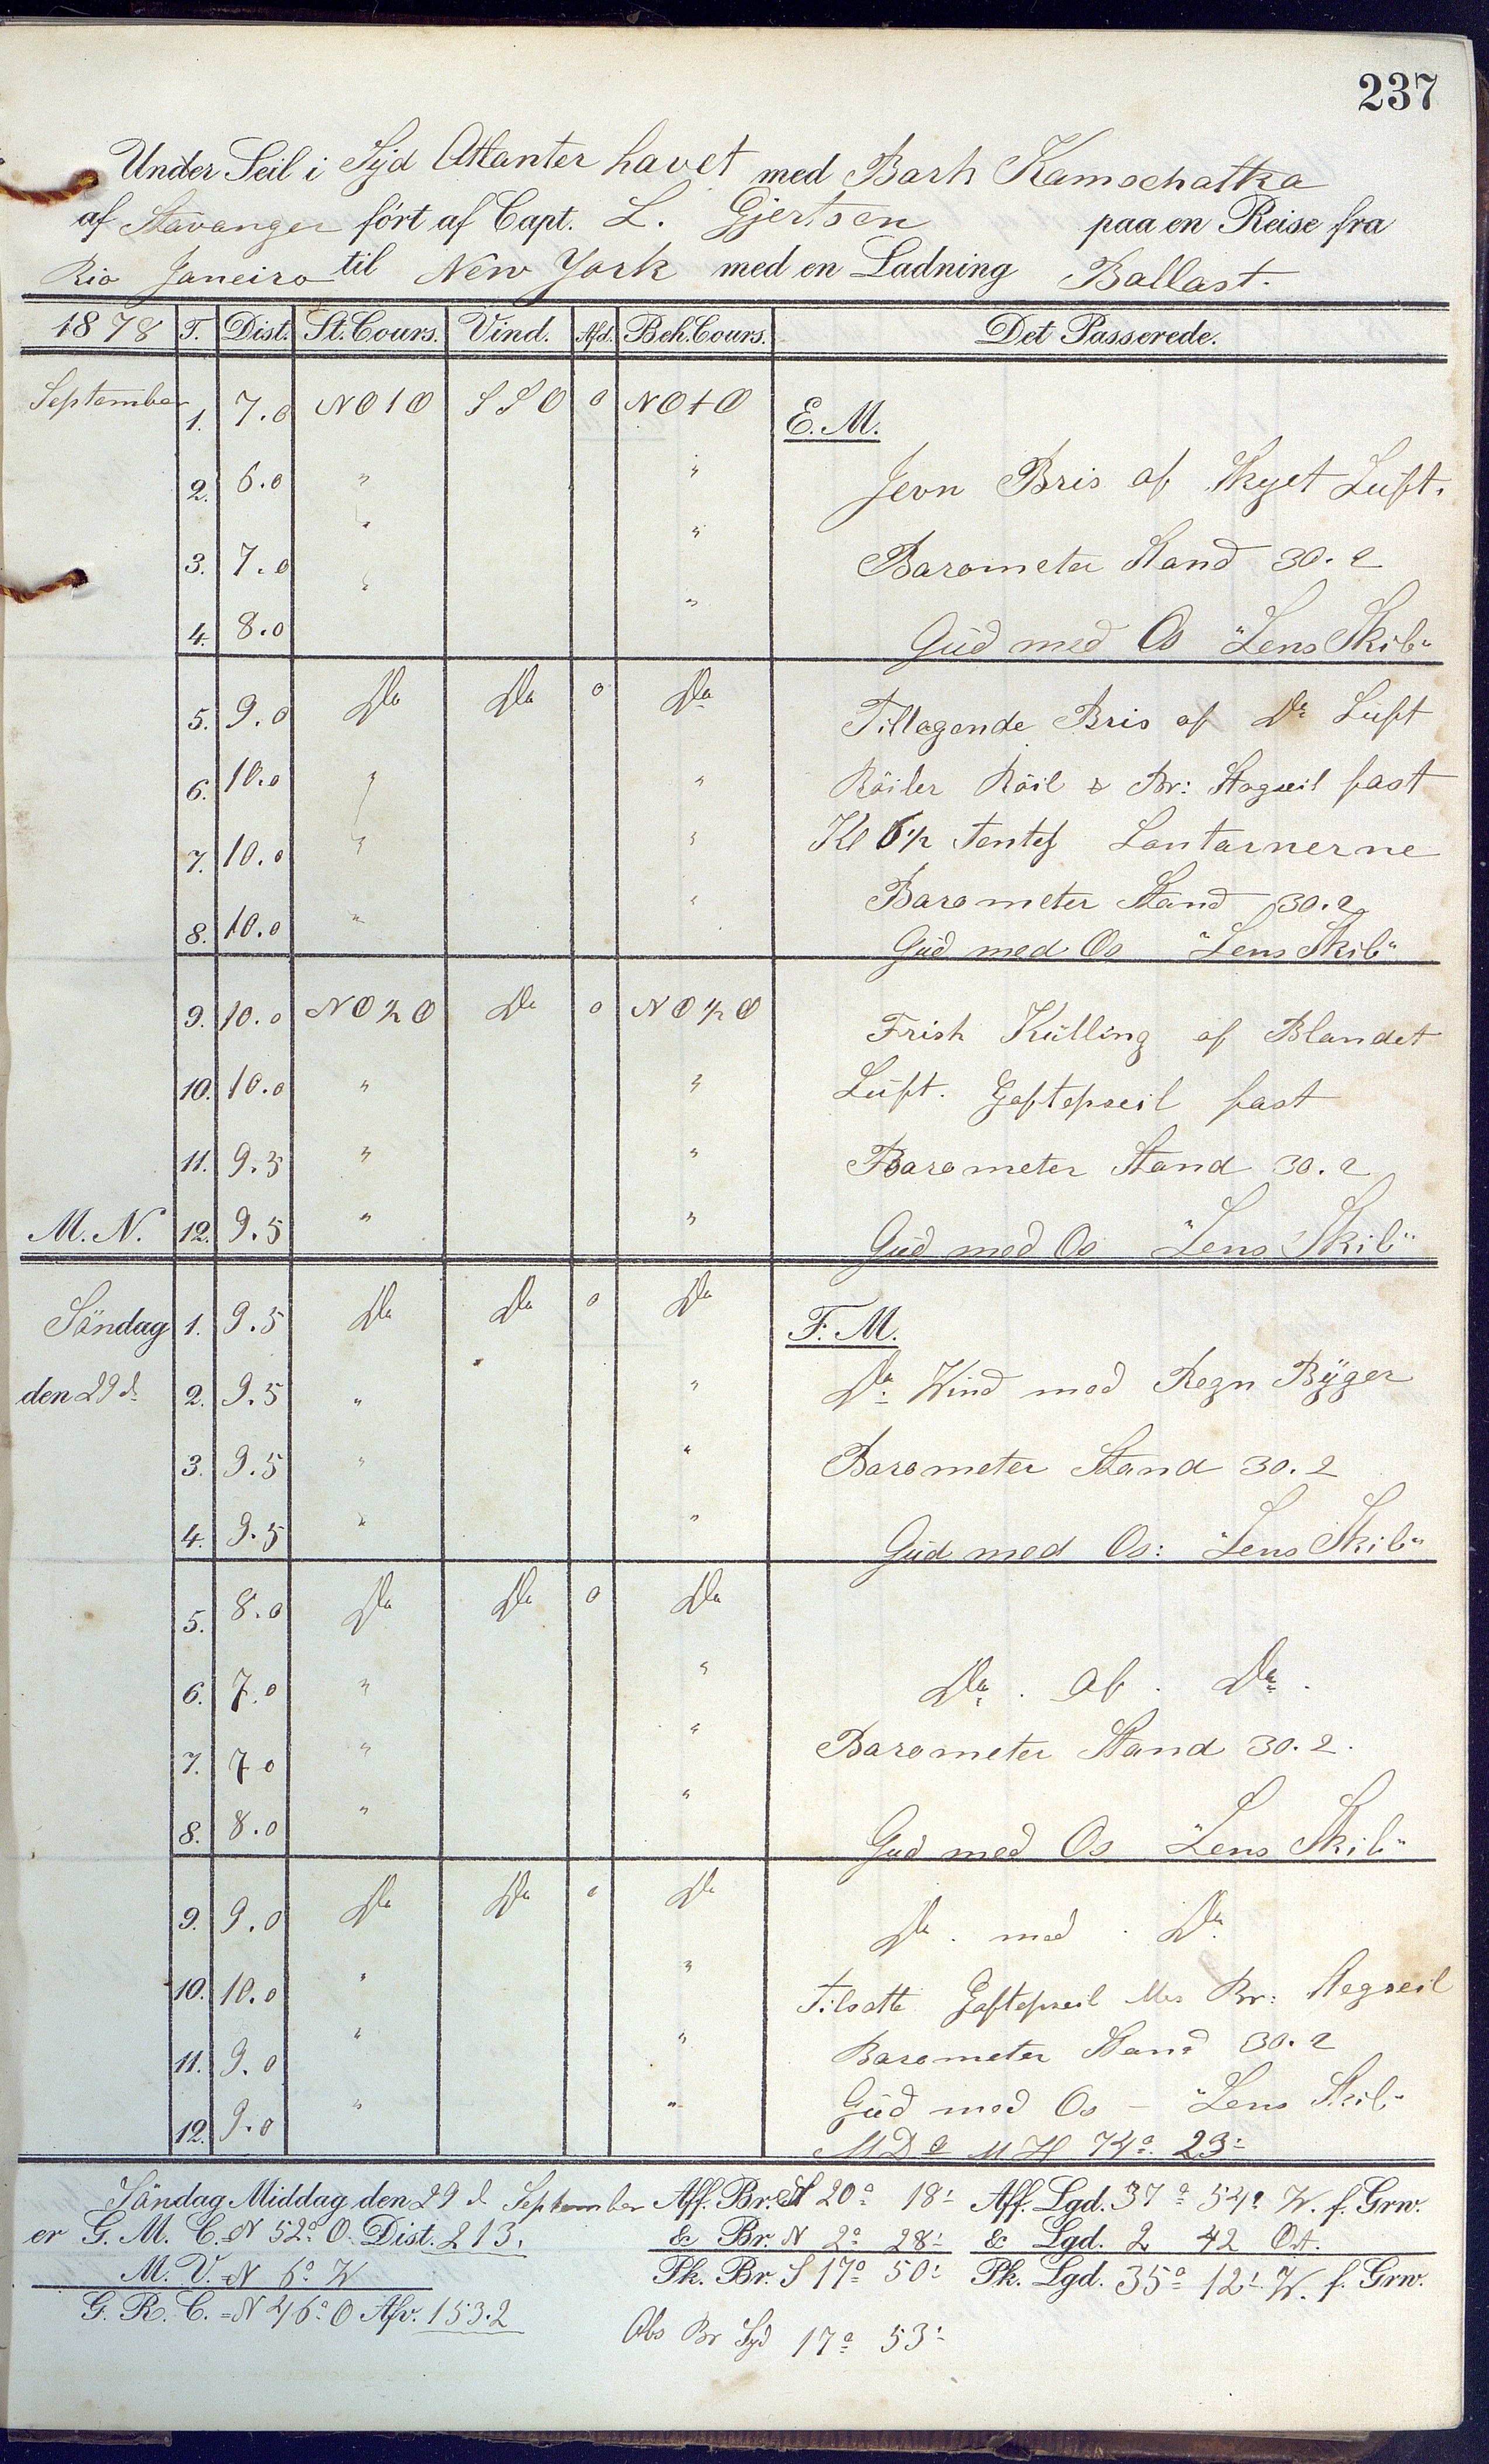 237
Under Seil i Syd Atlanter havet med Bark Kamschatka
af Stavanger fört af Capt. L. Gjertsen paa en Reise fra
Rio Janeiro til New York med en Ladning Ballast.
1878 T. Dist. St. Cours. Vind. Afd. Beh. Cours. Det Passerede.
September 1. 7.0 NO t O SSO 0 NO t O E. M.
2. 6.0 " " Jevn Bris af Skyet Luft.
3. 7.0 " " Barometer Stand 30.2
4. 8.0 " " Gud med Os "Lens Skib"
5. 9.0 Do Do 0 Do Tiltagende Bris af Do Luft
6. 10.0 " " Röiler Röil & Br: Stagseil fast
7. 10.0 " " Kl 6 1/2 Lantarnerne
8. 10.0 " " Barometer Stand 30.2
Gud med Os "Lens Skib"
9. 10.0 NO 1/2 O Do 0 NO 1/2 O Frisk Kulling af Blandet
10. 10.0 " " Luft. Gaftopseil fast
11. 9.5 " " Barometer Stand 30.2
M. N. 12. 9.5 " " Gud med Os "Lens Skib"
Söndag 1. 9.5 Do Do 0 Do F. M.
den 29 d. 2. 9.5 " " Do Wind med Regn Byger
3. 9.5 " " Barometer Stand 30.2
4. 9.5 " " Gud med Os: "Lens Skib"
5. 8.0 Do Do 0 Do
6. 7.0 " " Do. af. Do.
7. 7 0 " " Barometer Stand 30.2.
8. 8.0 " " Gud med Os "Lens Skib"
9. 9.0 Do Do 0 Do Do. med. Do.
10. 10.0 " " Tilsatte Gaftopseil Br: Stagseil
11. 9.0 " " Barometer Stand 30.2
12. 9.0 " " Gud med Os - "Lens Skib"
M H 74° 23'
Söndag Middag den 29 d. September Aff. Br. S 20° 18' Aff. Lgd. 37° 54' W. f. Grw.
er G. M. C. = N 52° O. Dist. 213. & Br. N 2° 28' & Lgd. 2 42 Ost.
M. V. = N 6° W Pk. Br. S 17° 50' Pk. Lgd. 35° 12' W. f. Grw.
G. R. C. = N 46° O Afv. 153.2
Obs Br Syd 17° 53'